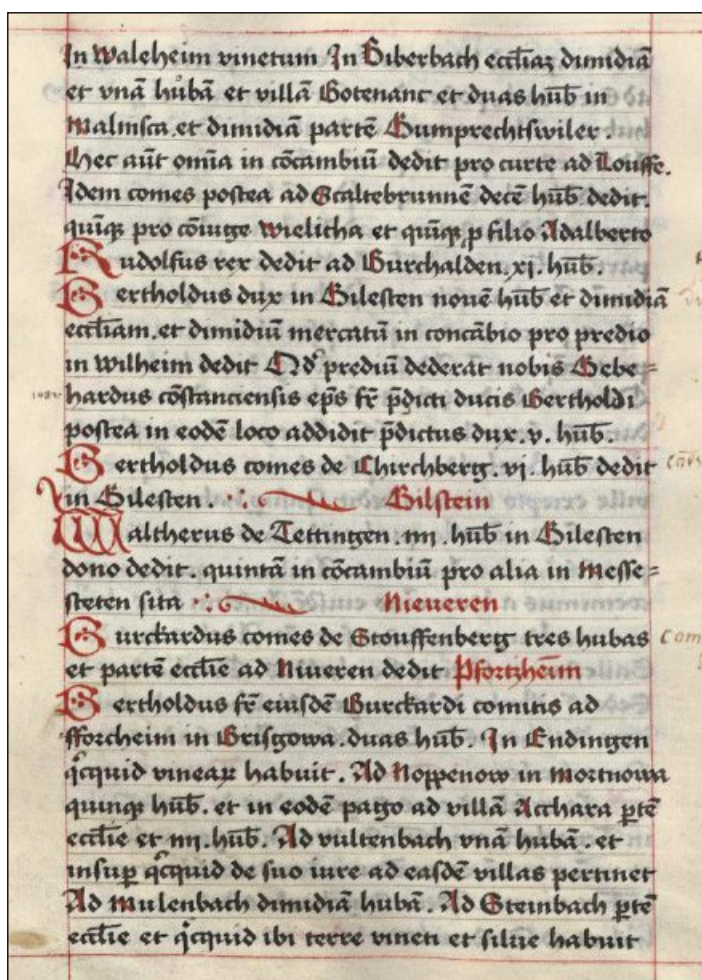 In Waleheim vinetum In Biberbach eccl̄iaꝫ dimidiā
et vnā hůbā et villā Gotenanc et duas hūb in
Malmsca et dimidiā partē Gumprechtswiler.
Hec aūt om̄ia in cōcambiū dedit pro curte ad Louffe.
Idem comes postea ad Scaltebrunnē decē hūb dedit.
quīqꝫ pro cōiuge Wielicha et quīqꝫ ꝓ filio Adalberto
Rudolfus rex dedit ad Burchalden. xj. hūb.
Bertholdus dux in Bilesten nouē hūb et dimidiā
eccl̄iam. et dimidiū mercatū in concābio pro predio
in Wilheim dedit Qd̓ prediū dederat nobis Gebe=
hardus cōstanciensis ep̄s fr̄ p̄dicti ducis Bertholdi
postea in eodē loco addidit p̄dictus dux. v. hūb.
Bertholdus comes de Chirchberg. vj. hūb dedit
in Bilesten. Bilstein
Waltherus de Tettingen. iiij. hūb in Bilesten
dono dedit. quintā in cōcambiū pro alia in Messe=
steten sita Nieueren
Burckardus comes de Stouffenberg tres hubas
et partē eccl̄ie ad Niueren dedit Pfortzheim
Bertholdus fr̄ eiusdē Burckardi comitis ad
fforcheim in Brisgowa. duas hūb. In Endingen
qͥcquid vineaꝝ habuit. Ad Noppenow in Mortnowa
quinqꝫ hūb. et in eodē pago ad villā Acchara ꝑtē
eccl̄ie et iiij. hūb. Ad vultenbach vnā hubā. et
insuꝑ qͥcquid de suo iure ad easdē villas pertinet
Ad Mulenbach dimidiā hubā. Ad Steinbach ꝑtē
eccl̄ie et qͥcquid ibi terre vineti et silue habuit